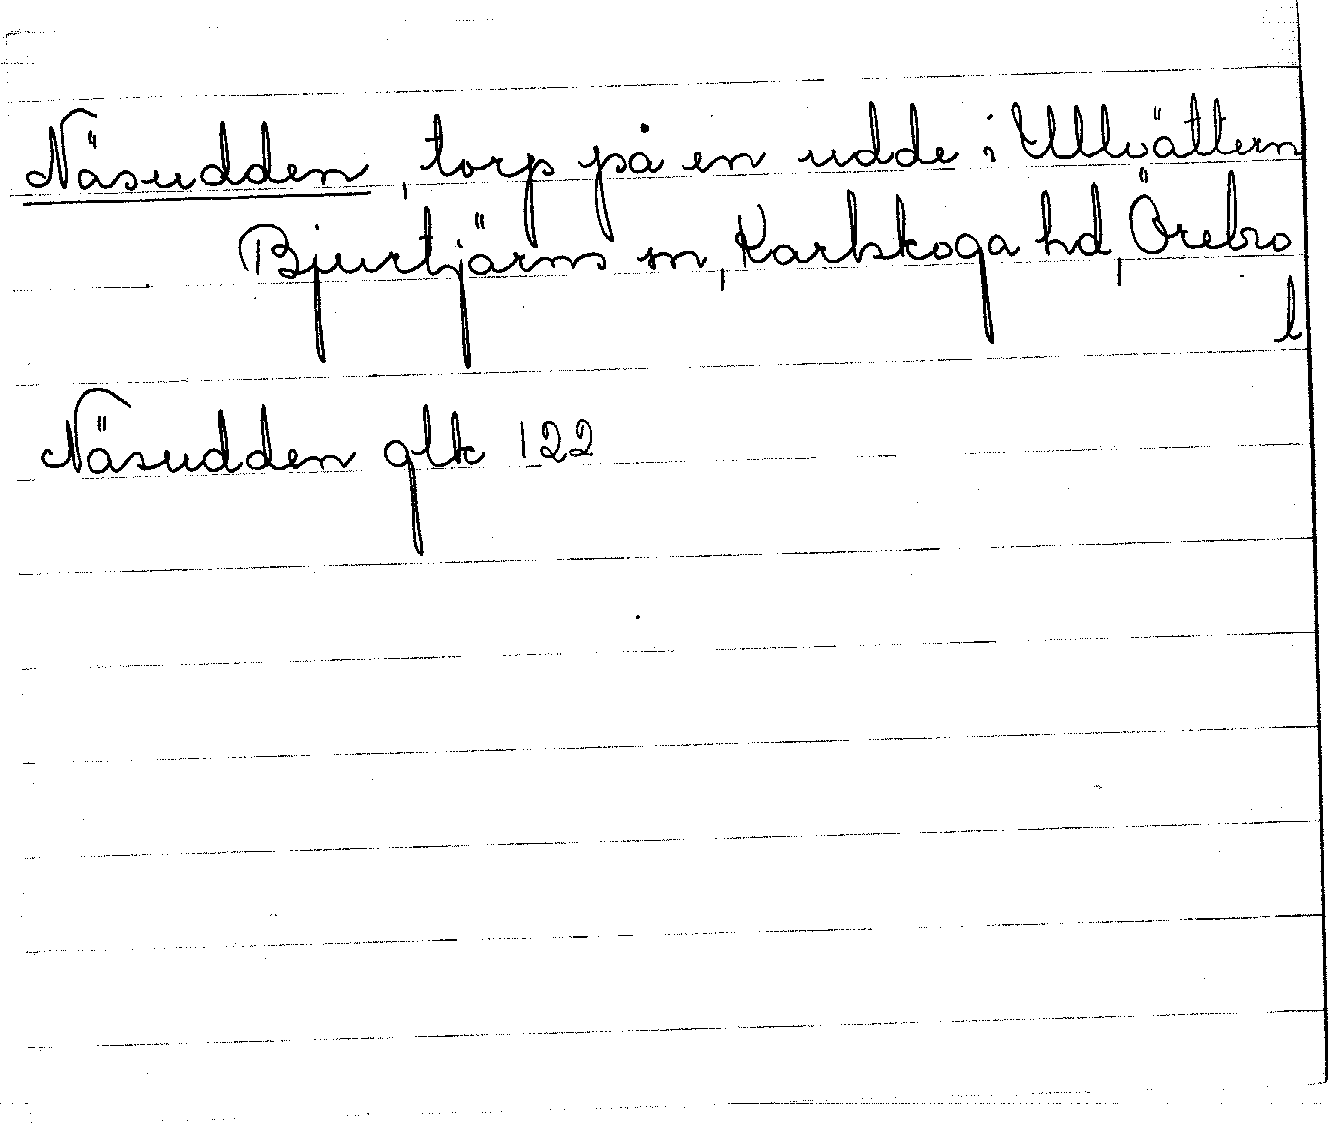 Näsudden, torp på en udde i Ullvättern
Bjurtjärns sn, Karlskoga hd, Örebro
l
Näsudden glk 122